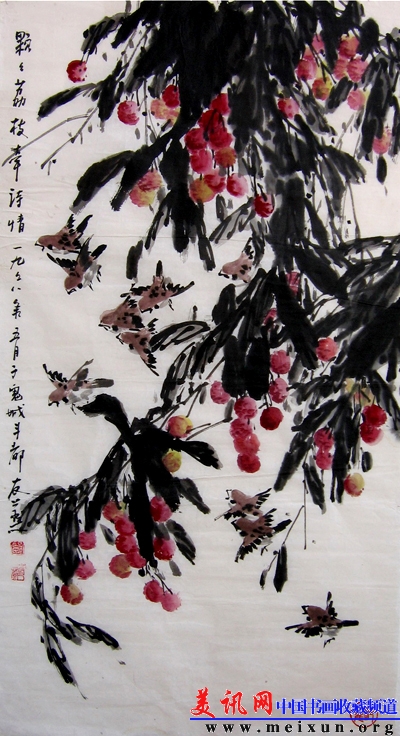 颗々荔枝牵诗情一九六八年五月于鬼城丰都
美讯网 中国书画收藏频道
www.meixun.org